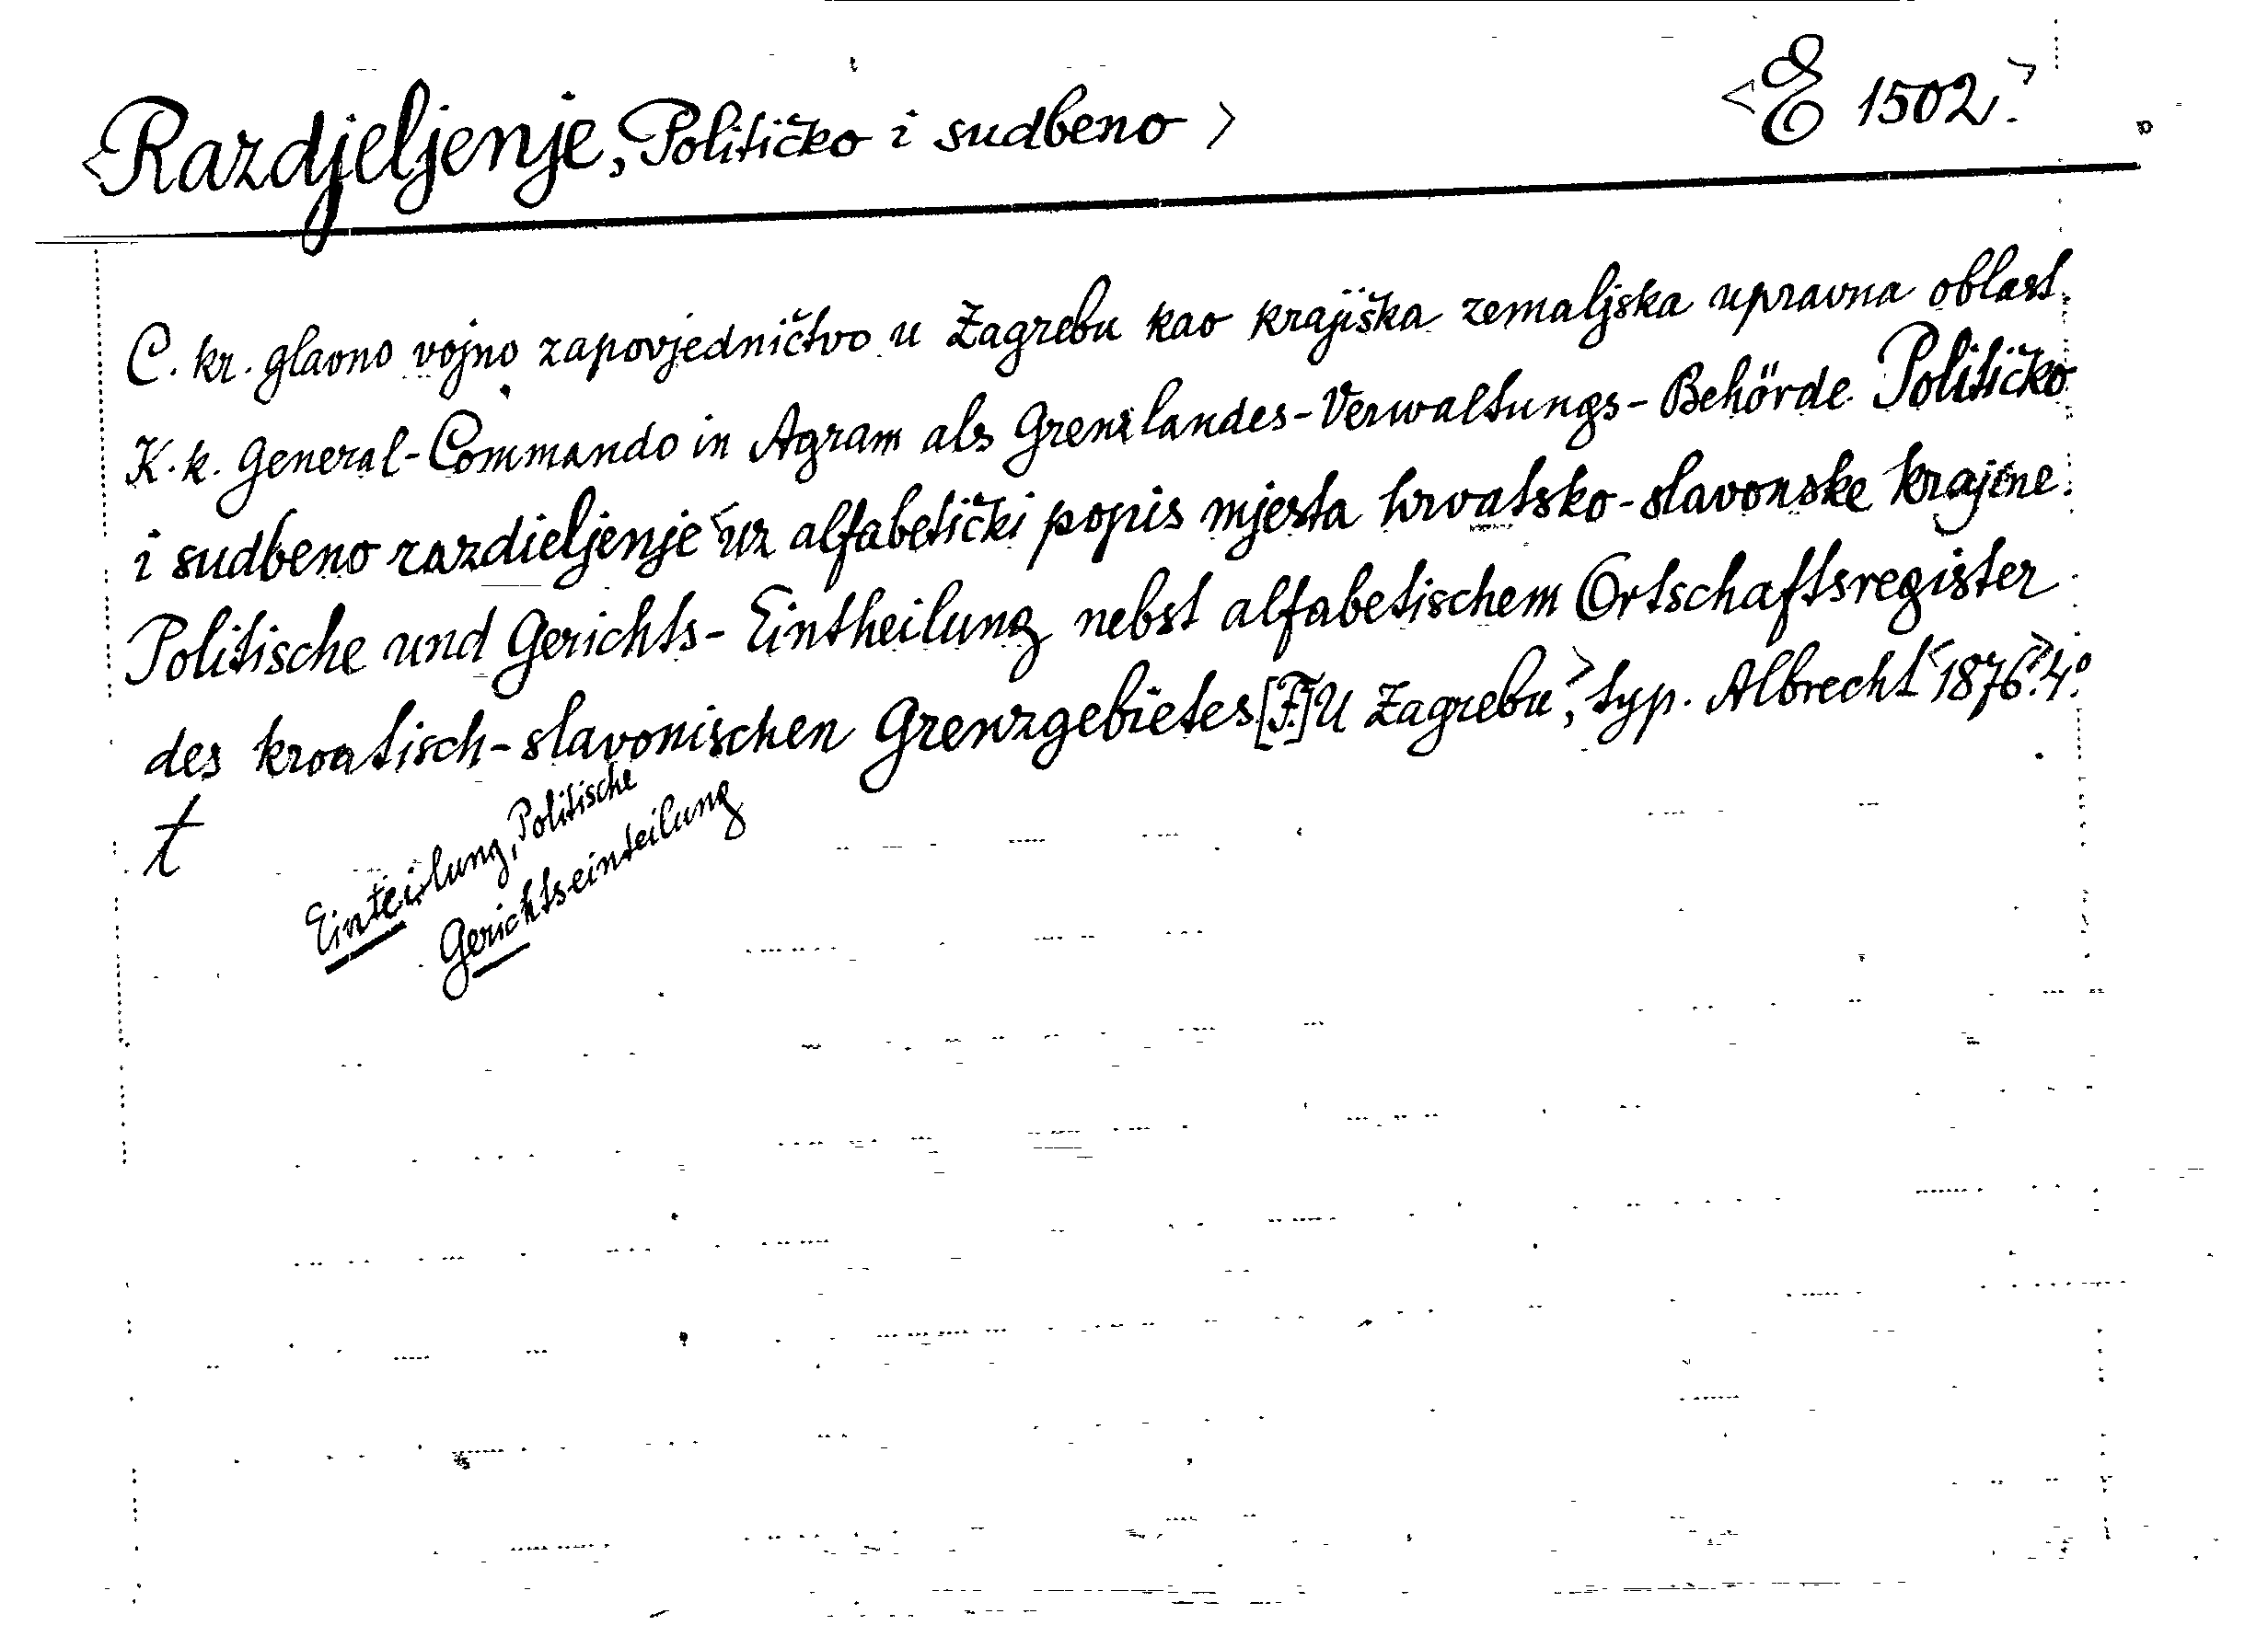 <Razdjeljenje, Političko i sudbeno>
<E 1502.>
C. kr. glavno vojno zapovjedničtvo u Zagrebu kao krajiška zemaljska upravna oblast.
K. k. General-Commando in Agram als Grenzlandes-Verwaltungs-Behörde. Političko
i sudbeno razdieljenje uz alfabetički popis mjesta hrvatsko-slavonske krajine.
Politische und Gerichts-Eintheilung nebst alfabetischem Ortschaftsregister
des kroatisch-slavonischen Grenzgebietes [F.] U Zagrebu>, typ. Albrecht <1876>. 4°.
t
Einteilung, Politische
Gerichtseinteilung